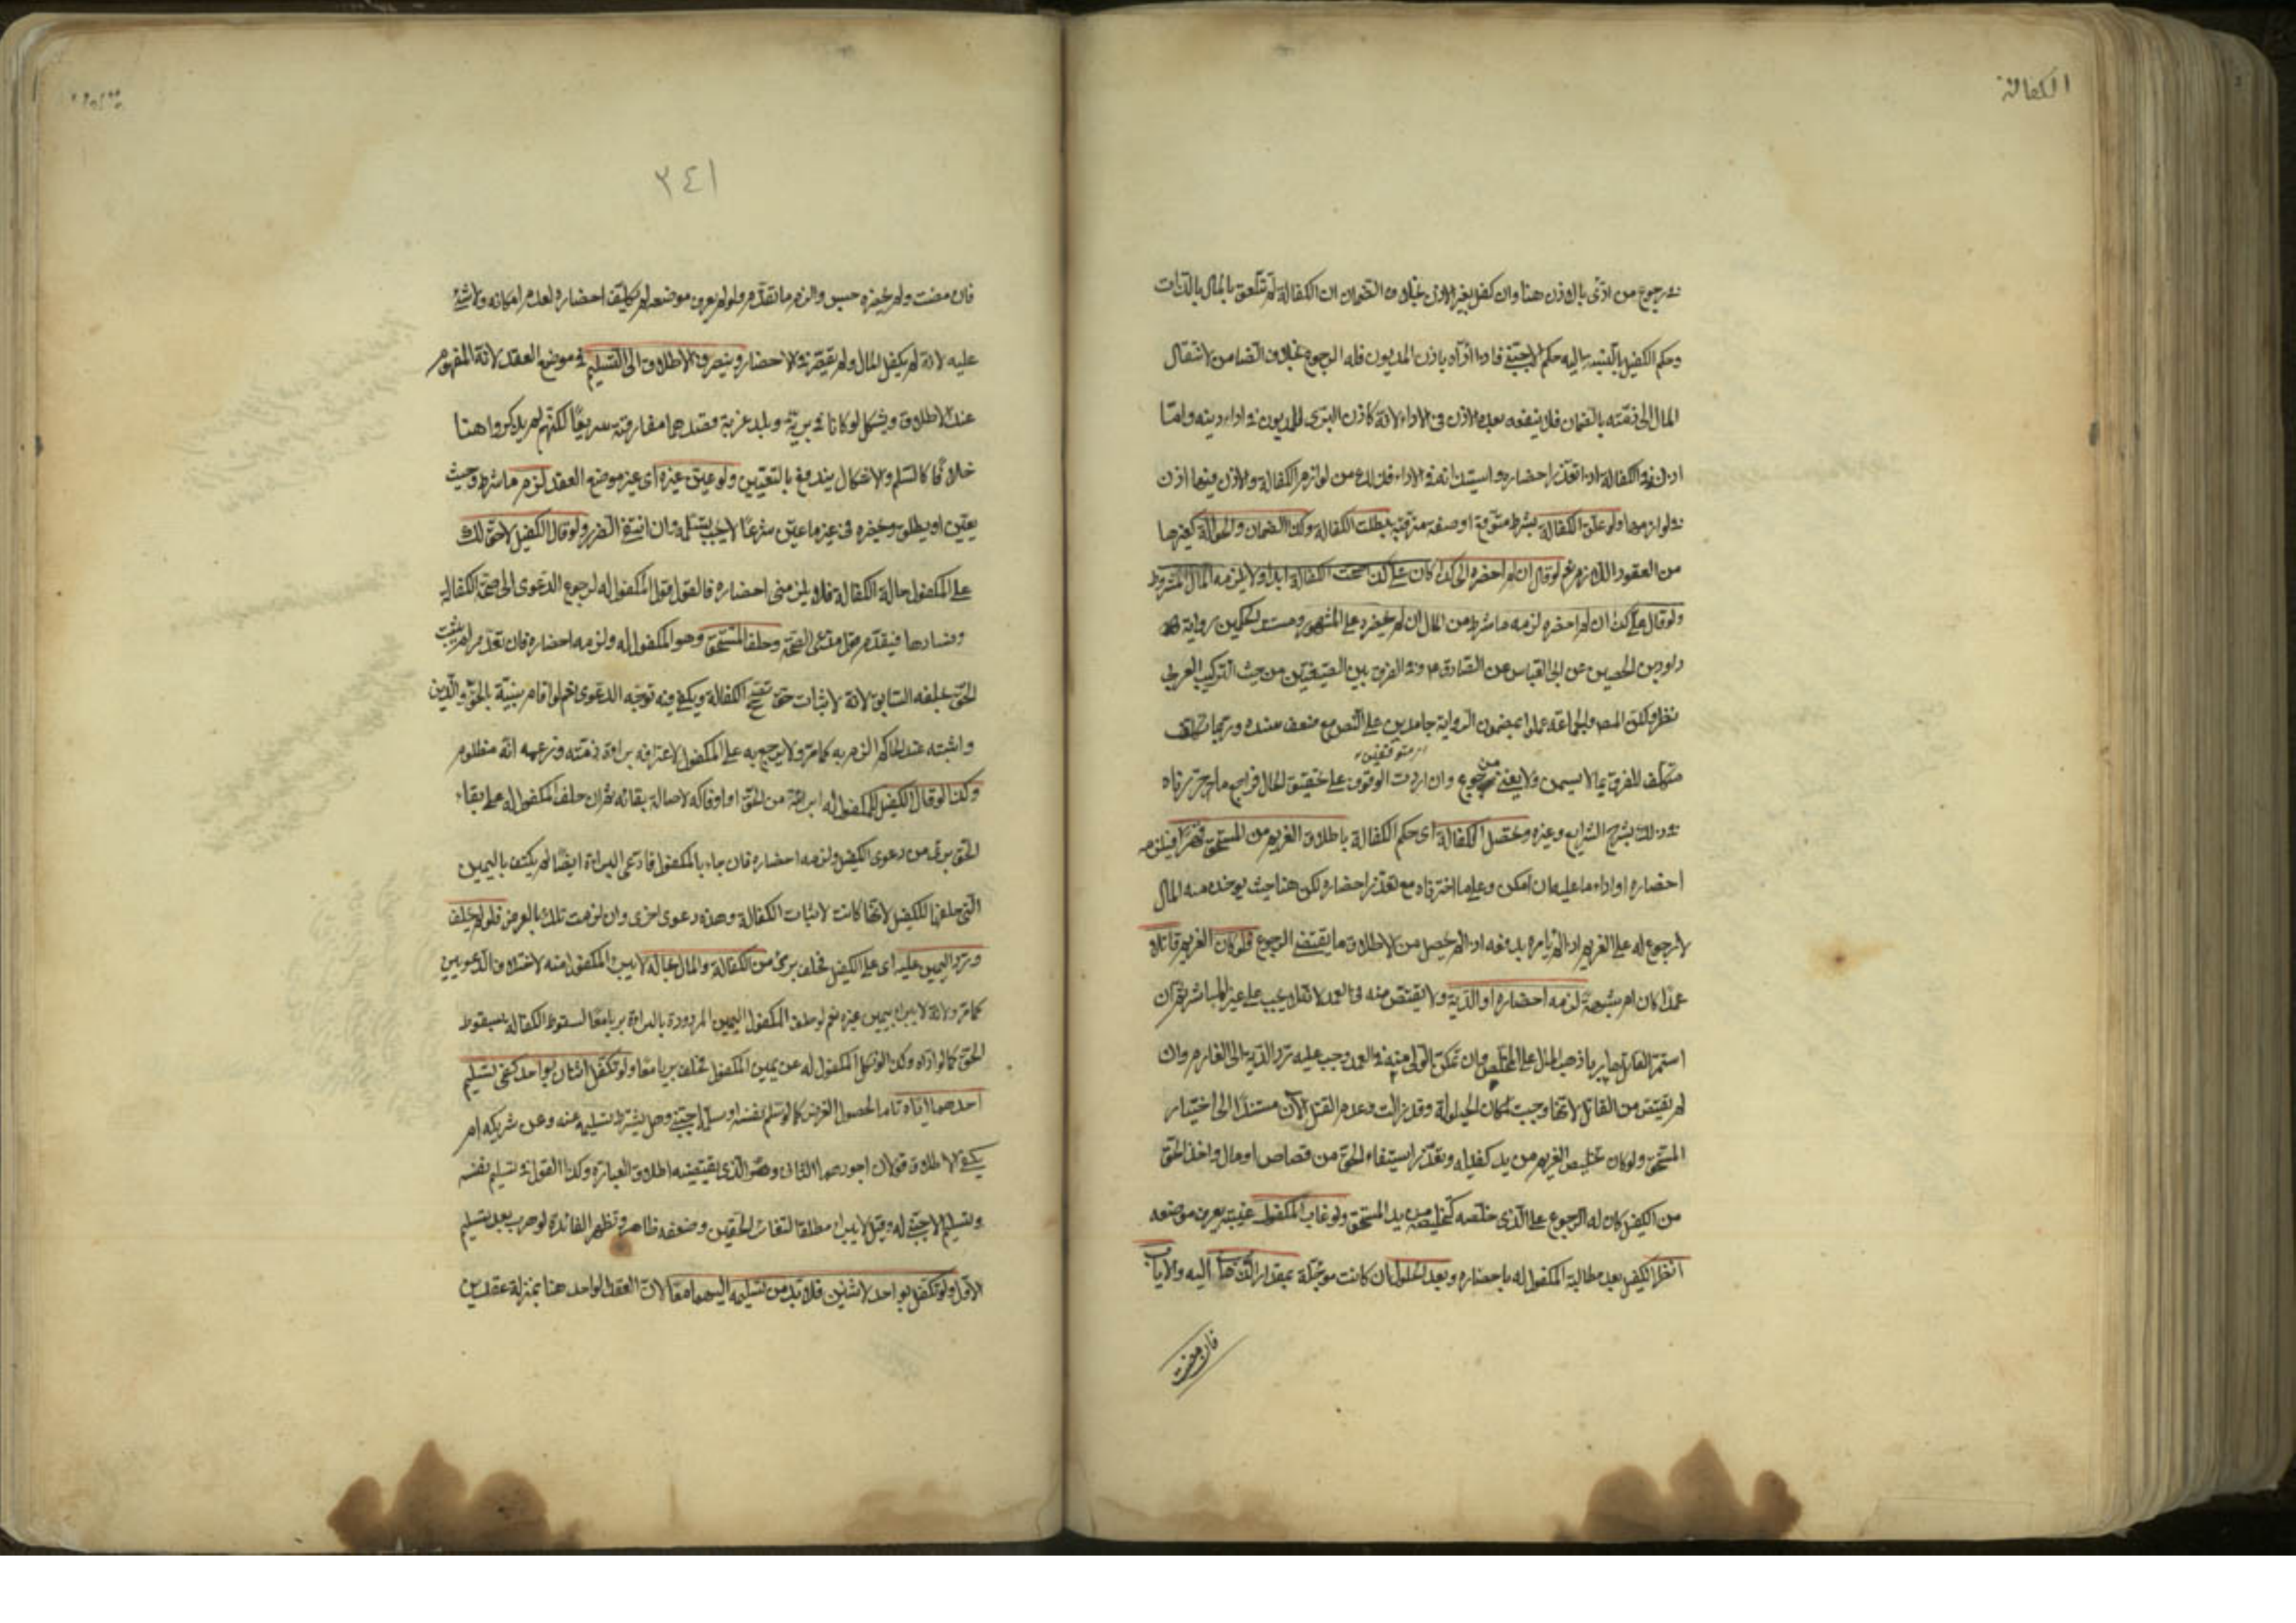 الكفالة
في رجوع من ادّى بالاذن هنا وان كفل بغير الاذن بخلاف الضمان ان الكفالة لم تتعلق بالمال بالذات
وحكم الكفيل بالنسبة اليه حكم الاجنبي فاذا أدّاه باذن المديون فله الرجوع بخلاف الضامن لانتقال
المال الى ذمته بالضمان فلا ينفعه بعده الاذن في الاداء لانه كاذن البرى للمديون في اداء دينه وامّا
اذنه في الكفالة اذا تعذر احضاره واستيذانه في الاداء فذلك من لوازم الكفالة والاذن فيها اذن
في لوازمها ولو علّق الكفالة بشرط متوقع او صفة مترقبة بطلت الكفالة وكذا الضمان والحوالة كغيرها
من العقود اللازمة نعم لو قال ان لم احضره الى كذا كان علي كذا صحت الكفالة ابدا ولا يلزمه المال المشروط
ولو قال علي كذا ان لم احضره لزمه ما شرط من المال ان لم يحضره على المشهور ومستند الحكمين رواية
داود بن الحصين عن ابي العباس عن الصادق ع وفي الفرق بين الصيغتين من حيث التركيب العربي
نظر ولكن المصـ والجماعة عملوا بمضمون الرواية جامدين على النص مع ضعف سنده وربما تكلف
متوقفين
متكلف للفرق بما لا يسمن ولا يغني من جوع وان اردت الوقوف على حقيقة الحال فراجع ما حررناه
في ذلك بشرح الشرايع وغيره وتحصل الكفالة اى حكم الكفالة باطلاق الغريم من المستحق قهرا فيلزمه
احضاره او اداء ما عليه ان امكن وعلى ما اخترناه مع تعذر احضاره لكن هنا حيث يوخذ منه المال
لا رجوع له على الغريم اذا لم يامره بدفعه اذ لم يحصل من الاطلاق ما يقتضي الرجوع فلو كان الغريم قاتلا
عمدا كان ام شبهة لزمه احضاره او الدية ولا يقتص منه في العمد لانه لا يجب على غير المباشر ثم ان
استمر القاتل هاربا ذهب المال على المخلص وان تمكن الولي منه في العمد وجب عليه ردّ الدية الى الغارم وان
لم يقتص من القاتل لانها وجبت لمكان الحيلولة وقد زالت وعدم القتل الآن مستند الى اختيار
المستحق ولو كان تخليص الغريم من يد كفيله وتعذر استيفاء الحق من قصاص او مال واخذ الحق
من الكفيل كان له الرجوع على الذي خلصه كتخليصه من يد المستحق ولو غاب المكفول غيبة يعرف موضعه
انظر الكفيل بعد مطالبة المكفول له باحضاره وبعد الحلول ان كانت موجلة بمقدار الذهاب اليه والاياب
فان مضت
٣٤١
فان مضت ولم يحضره حبس والزم ما تقدّم ولو لم يعرف موضعه لم يكلف احضاره لعدم امكانه ولا شئ
عليه لانه لم يكفل المال ولم يقصر في الاحضار وينصرف الاطلاق الى التسليم في موضع العقد لانه المفهوم
عند الاطلاق ويشكل لو كانا في بريّة او بلد غربة وقصدهما مفارقته سريعًا لكنهم لم يذكروا هنا
خلافًا كالسلم والاشكال يندفع بالتعيين ولو عيّن غيره اى غير موضع العقد لزم ما شرط وحيث
يعيّن او يطلق ويحضره في غير ما عيّن شرعًا لا يجب تسلمه وان انتفى الضرر ولو قال الكفيل لا حقّ لك
على المكفول حالة الكفالة فلا يلزمني احضاره فالقول قول المكفول له لرجوع الدعوى الى صحّة الكفالة
وفسادها فيقدّم قول مدّعي الصحّة وحلف المستحق وهو المكفول له ولزمه احضاره فان تعذّر لم يثبت
الحق بحلفه السابق لانه لاثبات حق تصح الكفالة ويكفي فيه توجّه الدعوى نعم لو اقام بينّة بالحق والّذين
واثبته عند الحاكم الزمه به كما مرّ ولا يرجع به على المكفول لاعترافه ببراءة ذمّته وزعمه انه مظلوم
وكذا لو قال الكفيل للمكفول له ابرأته من الحق او اوفاكه لاصالة بقائه ثم ان حلف المكفول له على بقاء
الحق برئ من دعوى الكفيل ولزمه احضاره فان جاء بالمكفول فادّعى البراءة ايضًا لم يكتف باليمين
التي حلفها للكفيل لانها كانت لاثبات الكفالة وهذه دعوى اخرى وان لزمت تلك بالعرض فلو لم يحلف
وردّ اليمين عليه اى على الكفيل فحلف برئ من الكفالة والمال بحاله لا يبرأ المكفول منه لاختلاف الدعويين
كما مرّ ولانه لا يبرأ بيمين غيره نعم لو حلف المكفول اليمين المردودة بالبراءة بريا معًا لسقوط الكفالة بسقوط
الحق كما لو ادّاه وكذا لو نكل المكفول له عن يمين المكفول فحلف بريا معًا ولو تكفّل اثنان بواحد كفى تسليم
احدهما اياه تاما لحصول الغرض كما لو سلم نفسه او سلّمه اجنبي وهل يشترط تسليمه عنه وعن شريكه ام
يكفي الاطلاق قولان اجودهما الثاني وهو الذي يقتضيه اطلاق العبارة وكذا القول في تسليم نفسه
وتسليم الاجنبي له وقيل لا يبرأ مطلقا لتغاير الحقين وضعفه ظاهر وتظهر الفائدة لو هرب بعد تسليم
الاوّل ولو تكفّل بواحد لاثنين فلا بدّ من تسليمه اليهما معًا لانّ العقد الواحد هنا بمنزلة عقدين